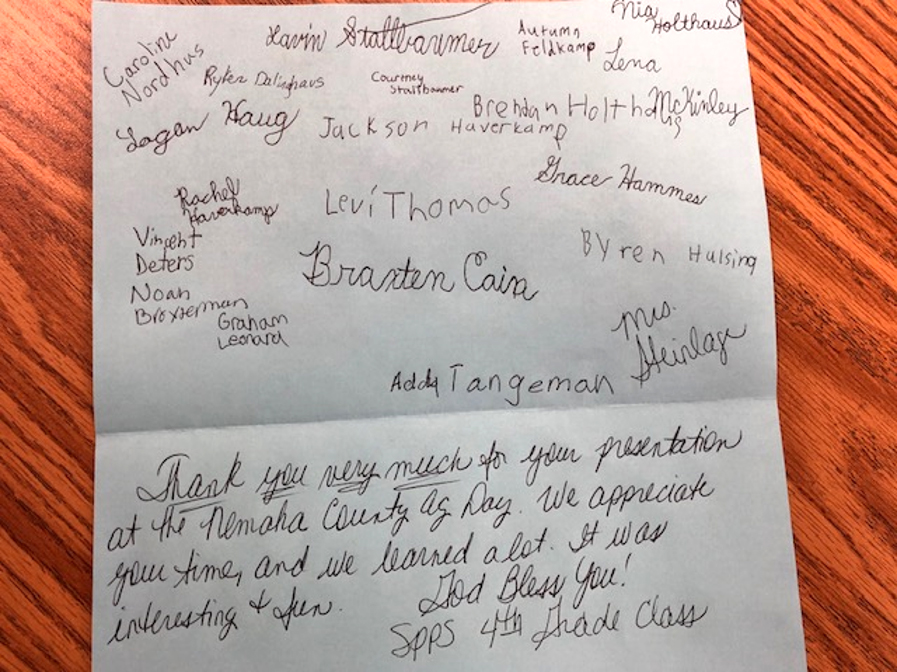 Nia
Holthaus
Caroline
Nordhus
Lavin Stallbaumer
Autumn
Feldkamp
Lena
Ryker Dalinghaus
Courtney
Stallbaumer
Brendan Holthaus
McKinley
Logan Haug
Jackson Haverkamp
Grace Hammes
Rachel
Haverkamp
Levi Thomas
Vincent
Deters
Byren Hulsing
Braxten Cain
Noah
Broxterman
Graham
Leonard
Mrs.
Heinlage
Addy Tangeman
Thank you very much for your presentation
at the Nemaha County Ag Day. We appreciate
your time, and we learned a lot. It was
interesting & fun.
God Bless You!
SPPS 4th Grade Class